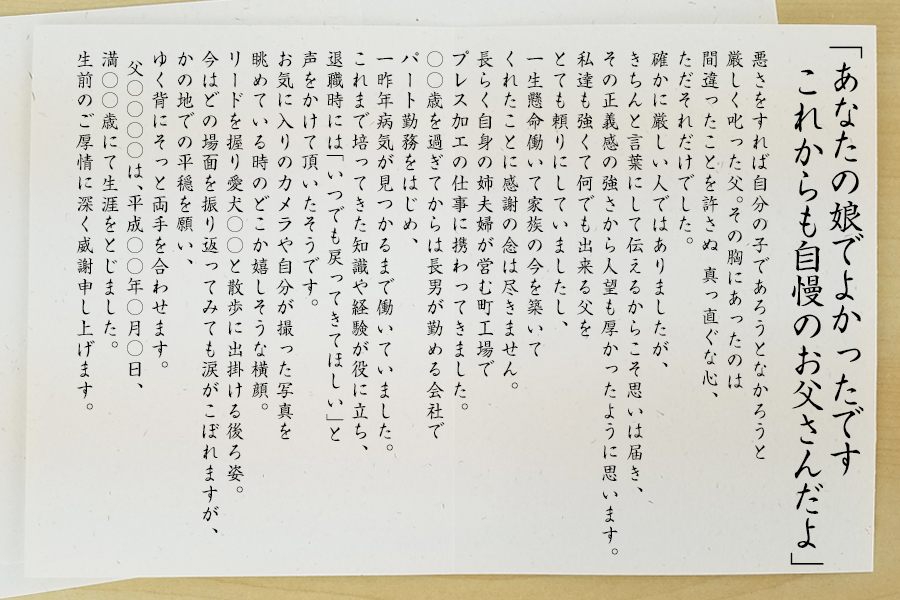 「あなたの娘でよかったです
これからも自慢のお父さんだよ」
悪さをすれば自分の子であろうとなかろうと
厳しく叱った父。その胸にあったのは
間違ったことを許さぬ 真っ直ぐな心、
ただそれだけでした。
確かに厳しい人ではありましたが、
きちんと言葉にして伝えるからこそ思いは届き、
その正義感の強さから人望も厚かったように思います。
私達も強くて何でも出来る父を
とても頼りにしていましたし、
一生懸命働いて家族の今を築いて
くれたことに感謝の念は尽きません。
長らく自身の姉夫婦が営む町工場で
プレス加工の仕事に携わってきました。
〇〇歳を過ぎてからは長男が勤める会社で
パート勤務をはじめ、
一昨年病気が見つかるまで働いていました。
これまで培ってきた知識や経験が役に立ち、
退職時には「いつでも戻ってきてほしい」と
声をかけて頂いたそうです。
お気に入りのカメラや自分が撮った写真を
眺めている時のどこか嬉しそうな横顔。
リードを握り愛犬〇〇と散歩に出掛ける後ろ姿。
今はどの場面を振り返ってみても涙がこぼれますが、
かの地での平穏を願い、
ゆく背にそっと両手を合わせます。
父〇〇〇〇は、平成〇〇年〇月〇日、
満〇〇歳にて生涯をとじました。
生前のご厚情に深く感謝申し上げます。